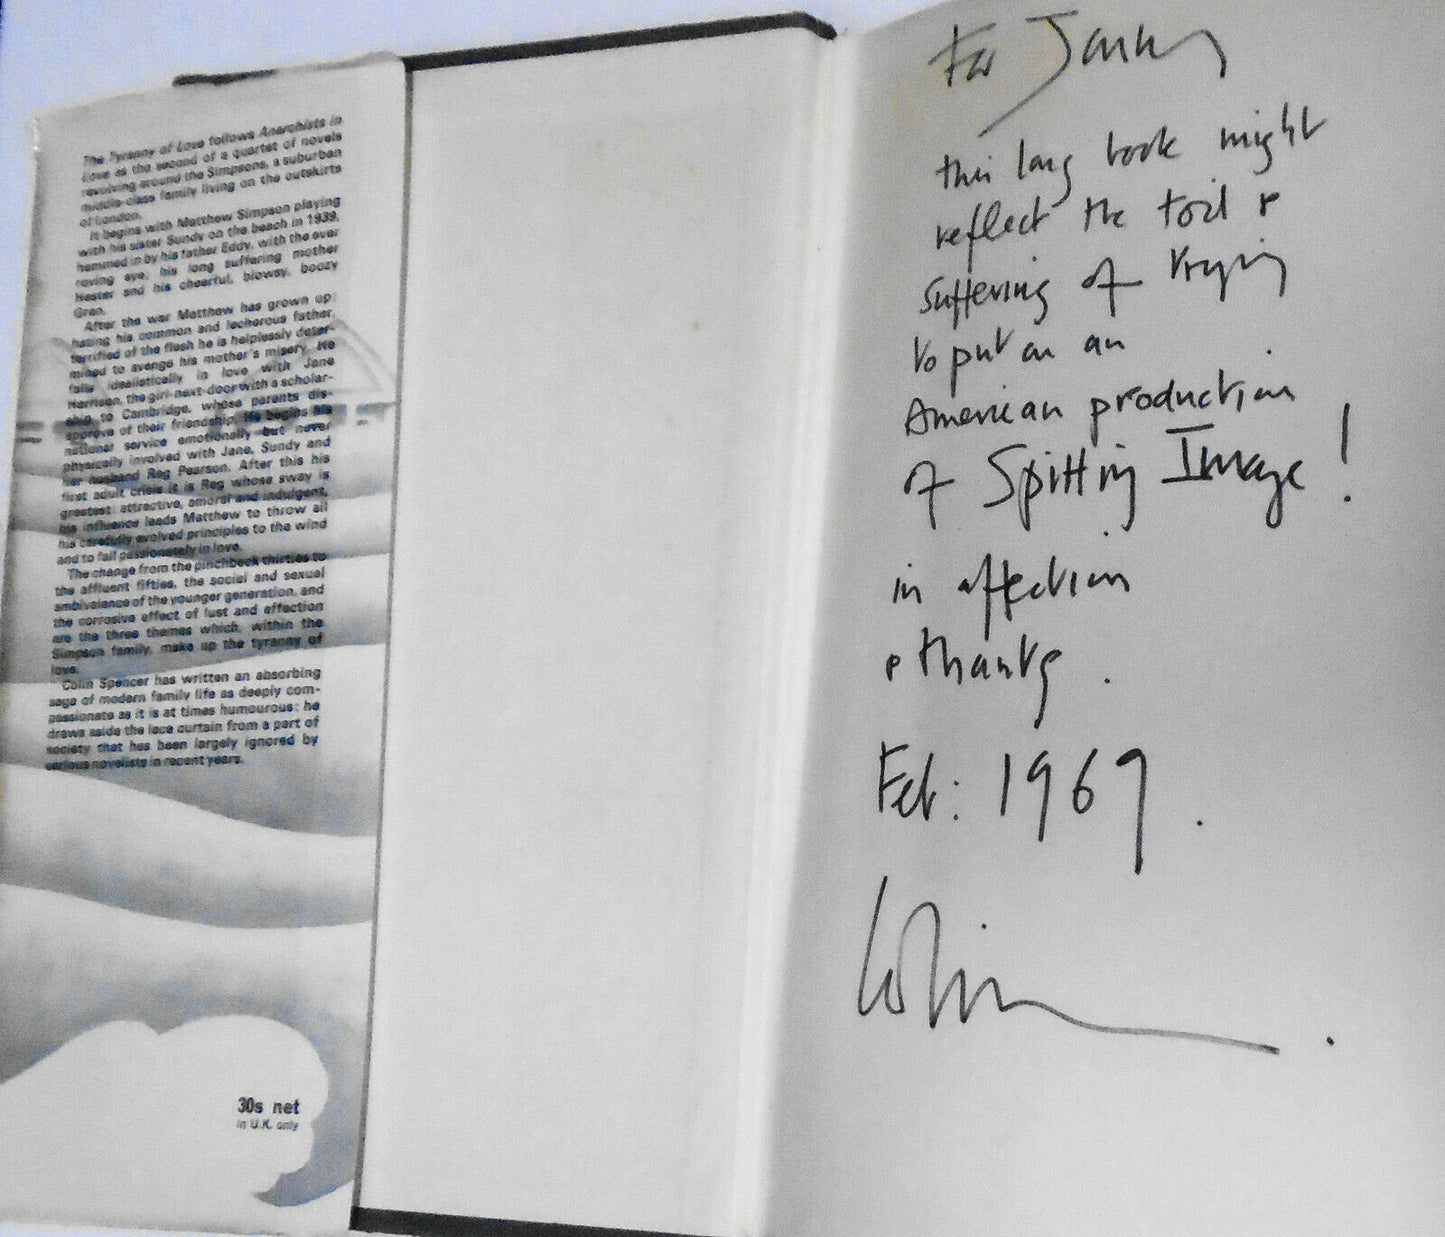 The Tyranny of Love follows Anarchists in
Love as the second of a quartet of novels
revolving around the Simpsons, a suburban
middle-class family living on the outskirts
of London.
It begins with Matthew Simpson playing
with his sister Sundy on the beach in 1939,
hemmed in by his father Eddy, with the ever
roving eye, his long suffering mother
Hester and his cheerful, blowsy, boozy
Gran.
After the war Matthew has grown up:
hating his common and lecherous father,
terrified of the flesh he is helplessly deter-
mined to avenge his mother's misery. He
falls idealistically in love with Jane
Harrison, the girl-next-door with a scholar-
ship to Cambridge, whose parents dis-
approve of their friendship. He begins his
national service emotionally but never
physically involved with Jane, Sundy and
her husband Reg Pearson. After this his
first adult crisis it is Reg whose sway is
greatest: attractive, amoral and indulgent,
his influence leads Matthew to throw all
his carefully evolved principles to the wind
and to fall passionately in love.
The change from the pinchbeck thirties to
the affluent fifties, the social and sexual
ambivalence of the younger generation, and
the corrosive effect of lust and affection
are the three themes which, within the
Simpson family, make up the tyranny of
love.
Colin Spencer has written an absorbing
saga of modern family life as deeply com-
passionate as it is at times humourous: he
draws aside the lace curtain from a part of
society that has been largely ignored by
serious novelists in recent years.
30s net
in U.K. only
For
this long book might
reflect the toil &
suffering of trying
to put on an
American production
of Spitting Image!
in affection
& thanks.
Feb: 1969.
Colin.